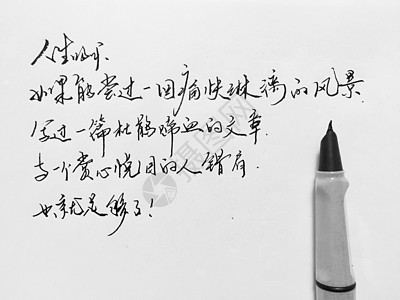 人生的戏
如果能尝过一回痛快淋漓的风景
写过一篇杜鹃啼血的文章
与一个赏心悦目的人错肩
也就足够了！
摄图网